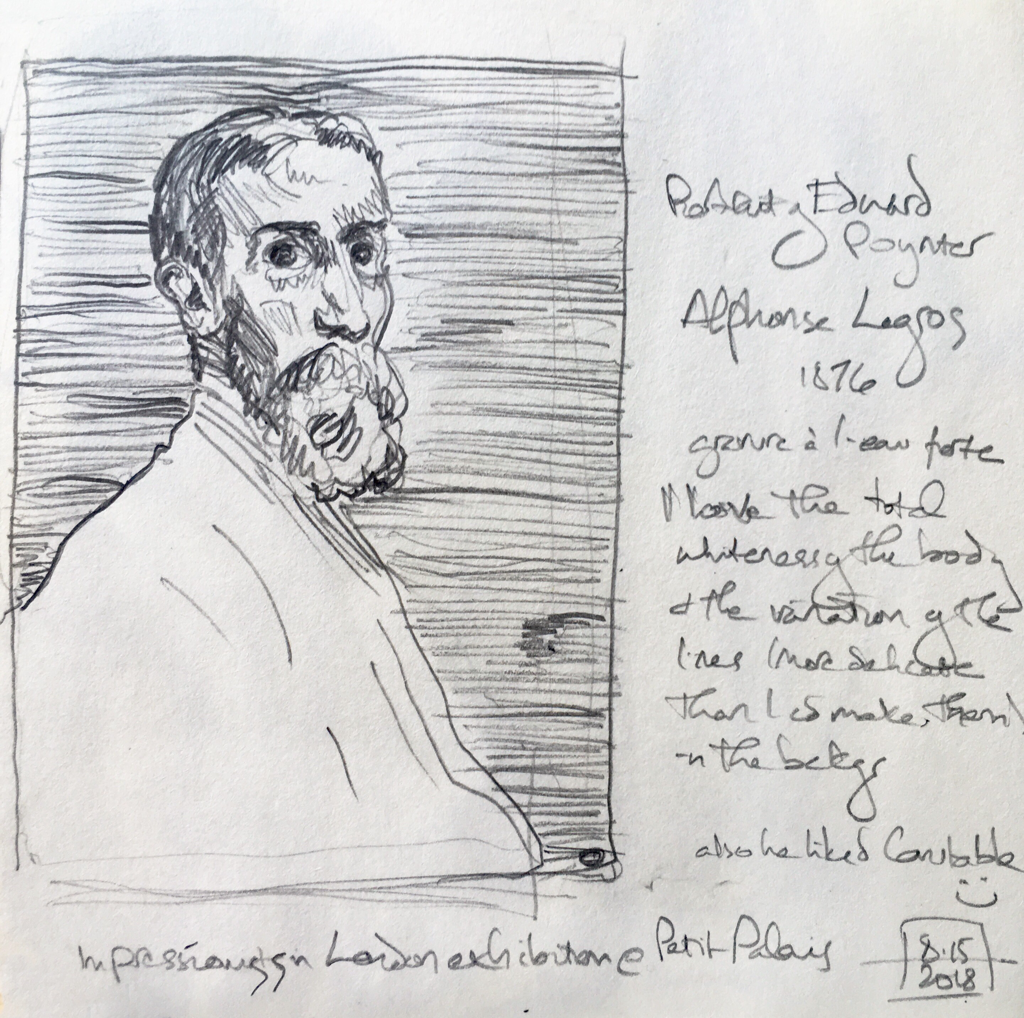 Portrait of Edward
Poynter
Alphonse Legros
1876
gravure à l'eau forte
I love the total
whiteness of the body
& the variation of the
lines (more delicate
than I cd make them)
in the backgr
also he liked Constable
Impressionists in London exhibition @ Petit Palais
8·15
2018